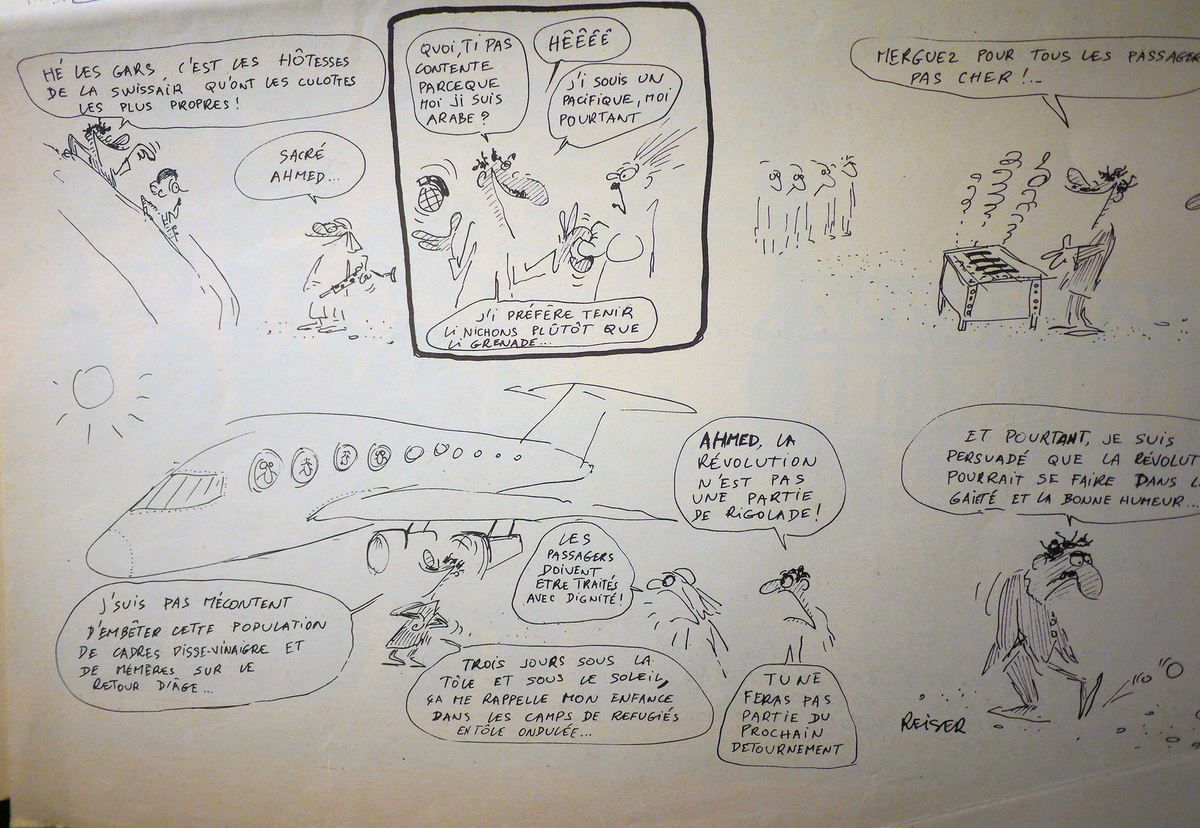 HÉ LES GARS, C'EST LES HÔTESSES
DE LA SWISSAIR QU'ONT LES CULOTTES
LES PLUS PROPRES !
SACRÉ
AHMED...
QUOI, TI PAS
CONTENTE
PARCEQUE
MOI JI SUIS
ARABE ?
HÊÊÊÊ
J'I SOUIS UN
PACIFIQUE, MOI
POURTANT
J'I PRÉFÈRE TENIR
LI NICHONS PLÛTÔT QUE
LI GRENADE...
MERGUEZ POUR TOUS LES PASSAGER
PAS CHER !...
J'SUIS PAS MÉCONTENT
D'EMBÊTER CETTE POPULATION
DE CADRES PISSE-VINAIGRE ET
DE MÉMÈRES SUR LE
RETOUR D'ÂGE...
TROIS JOURS SOUS LA
TÔLE ET SOUS LE SOLEIL,
ÇA ME RAPPELLE MON ENFANCE
DANS LES CAMPS DE REFUGIÉS
EN TÔLE ONDULÉE...
LES
PASSAGERS
DOIVENT
ETRE TRAITÉS
AVEC DIGNITÉ !
AHMED, LA
RÉVOLUTION
N'EST PAS
UNE PARTIE
DE RIGOLADE !
TU NE
FERAS PAS
PARTIE DU
PROCHAIN
DETOURNEMENT
ET POURTANT, JE SUIS
PERSUADÉ QUE LA RÉVOLUT
POURRAIT SE FAIRE DANS L
GAIETÉ ET LA BONNE HUMEUR...
REISER